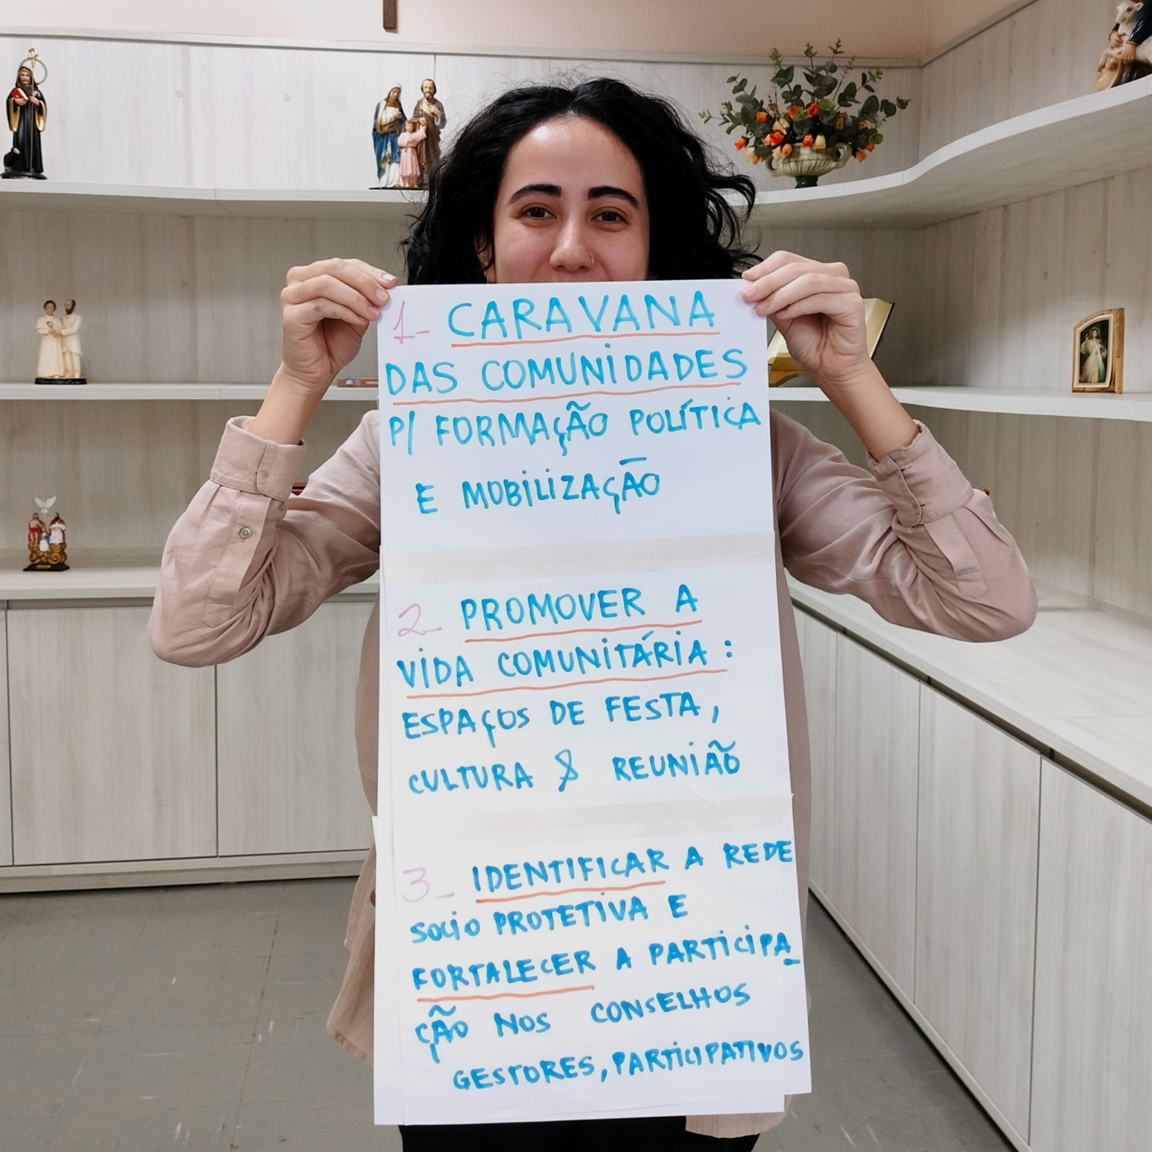 1- CARAVANA
DAS COMUNIDADES
P/ FORMAÇÃO POLÍTICA
E MOBILIZAÇÃO
2- PROMOVER A
VIDA COMUNITÁRIA:
ESPAÇOS DE FESTA,
CULTURA & REUNIÃO
3- IDENTIFICAR A REDE
SOCIO PROTETIVA E
FORTALECER A PARTICIPA-
ÇÃO NOS CONSELHOS
GESTORES, PARTICIPATIVOS